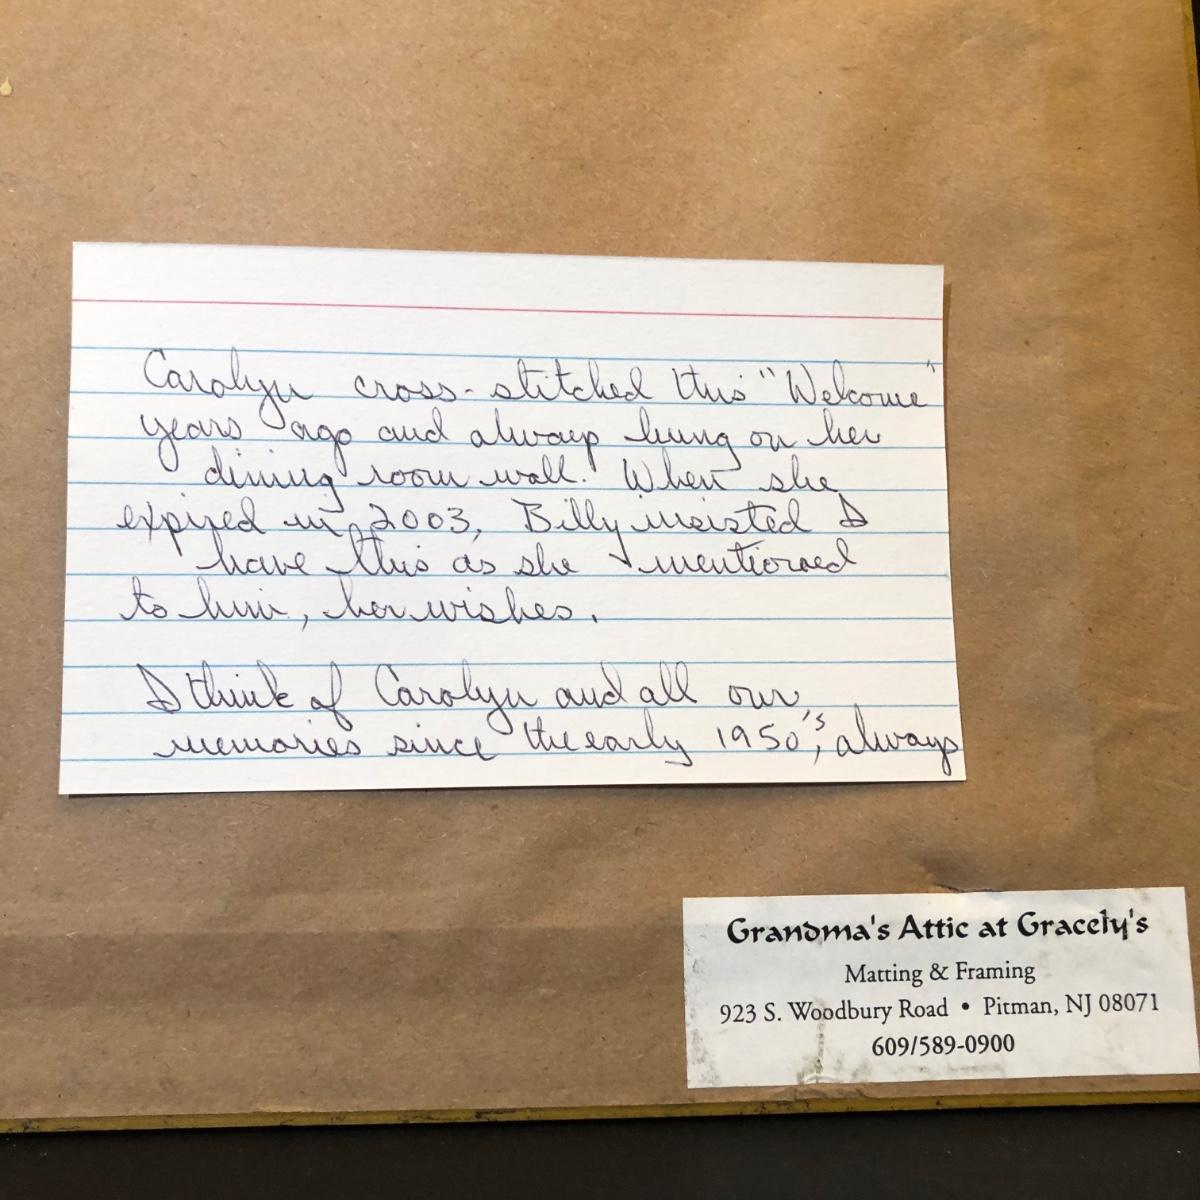 Carolyn cross-stitched this "Welcome"
years ago and always hung on her
dining room wall. When she
expired in 2003, Billy insisted I
have this as she mentioned
to him, her wishes.
I think of Carolyn and all our
memories since the early 1950's, always
Grandma's Attic at Gracely's
Matting & Framing
923 S. Woodbury Road • Pitman, NJ 08071
609/589-0900